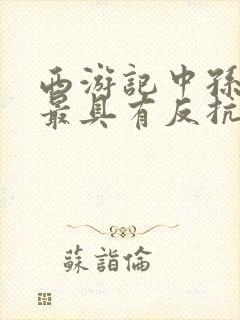 西游記中孫
最具有反抗
蘇詣倫